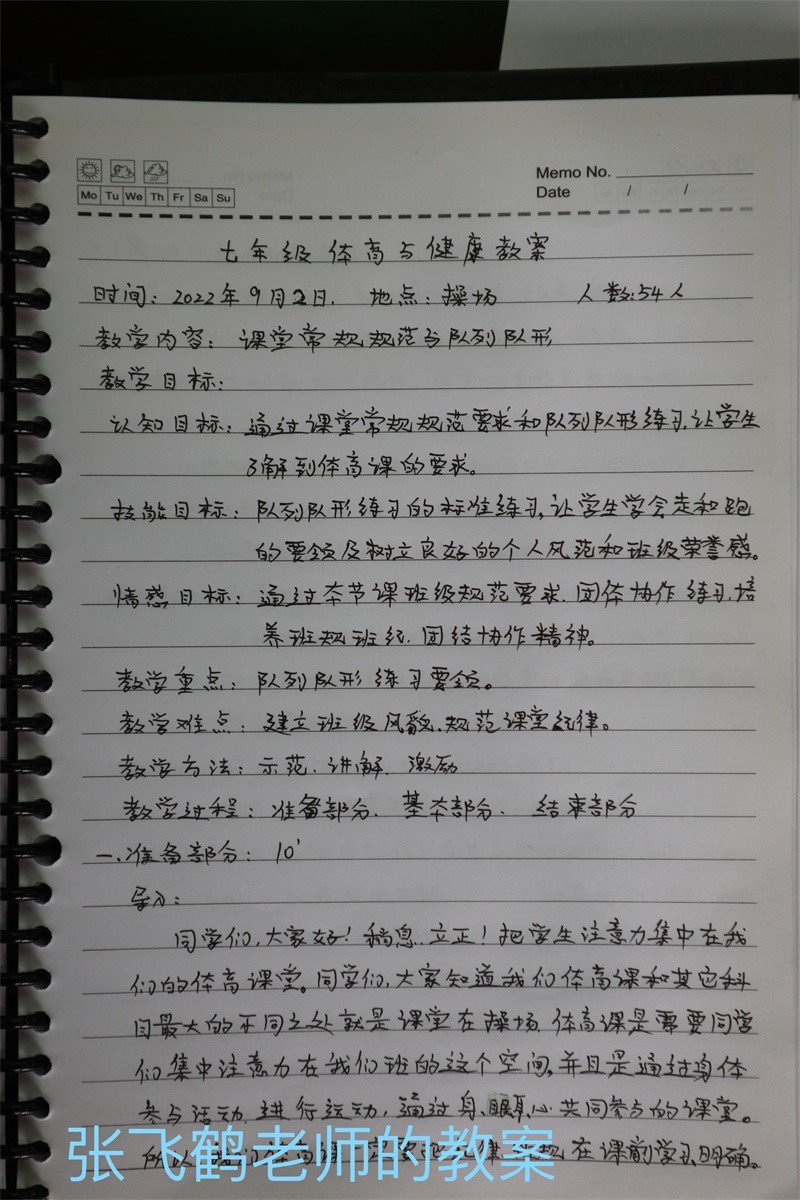 Memo No.
Mo Tu We Th Fr Sa Su
Date / /
七年级体育与健康教案
时间：2022年9月2日. 地点：操场 人数：54人
教学内容：课堂常规规范与队列队形
教学目标：
认知目标：通过课堂常规规范要求和队列队形练习，让学生
了解到体育课的要求。
技能目标：队列队形练习的标准练习，让学生学会走和跑
的要领及树立良好的个人风范和班级荣誉感。
情感目标：通过本节课班级规范要求、团体协作练习，培
养班规班纪、团结协作精神。
教学重点：队列队形练习要领。
教学难点：建立班级风貌、规范课堂纪律。
教学方法：示范、讲解、激励
教学过程：准备部分、基本部分、结束部分
一、准备部分：10'
导入：
同学们，大家好！稍息、立正！把学生注意力集中在我
们的体育课堂。同学们，大家知道我们体育课和其它科
目最大的不同之处就是课堂在操场，体育课是需要同学
们集中注意力在我们班的这个空间，并且是通过身体
参与活动，进行运动，通过身、眼、心共同参与的课堂。
所以 在课前学习、明确。
张飞鹤老师的教案